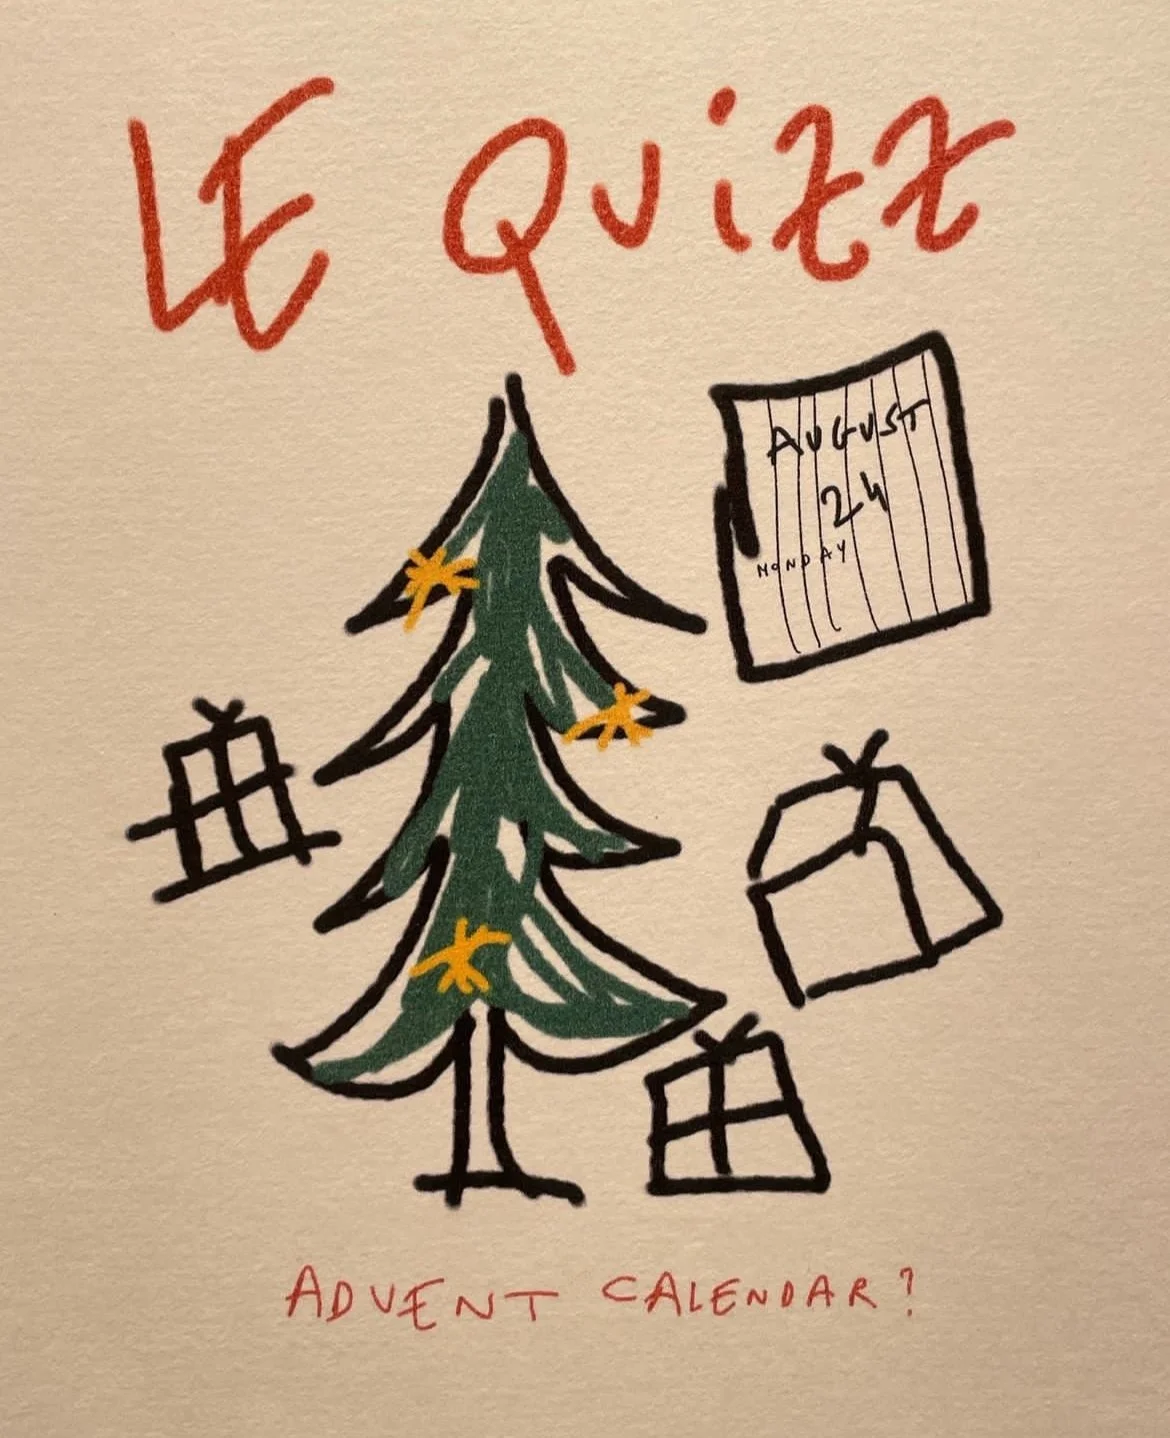 LE QUiZZ
AUGUST
24
MONDAY
ADVENT CALENDAR?